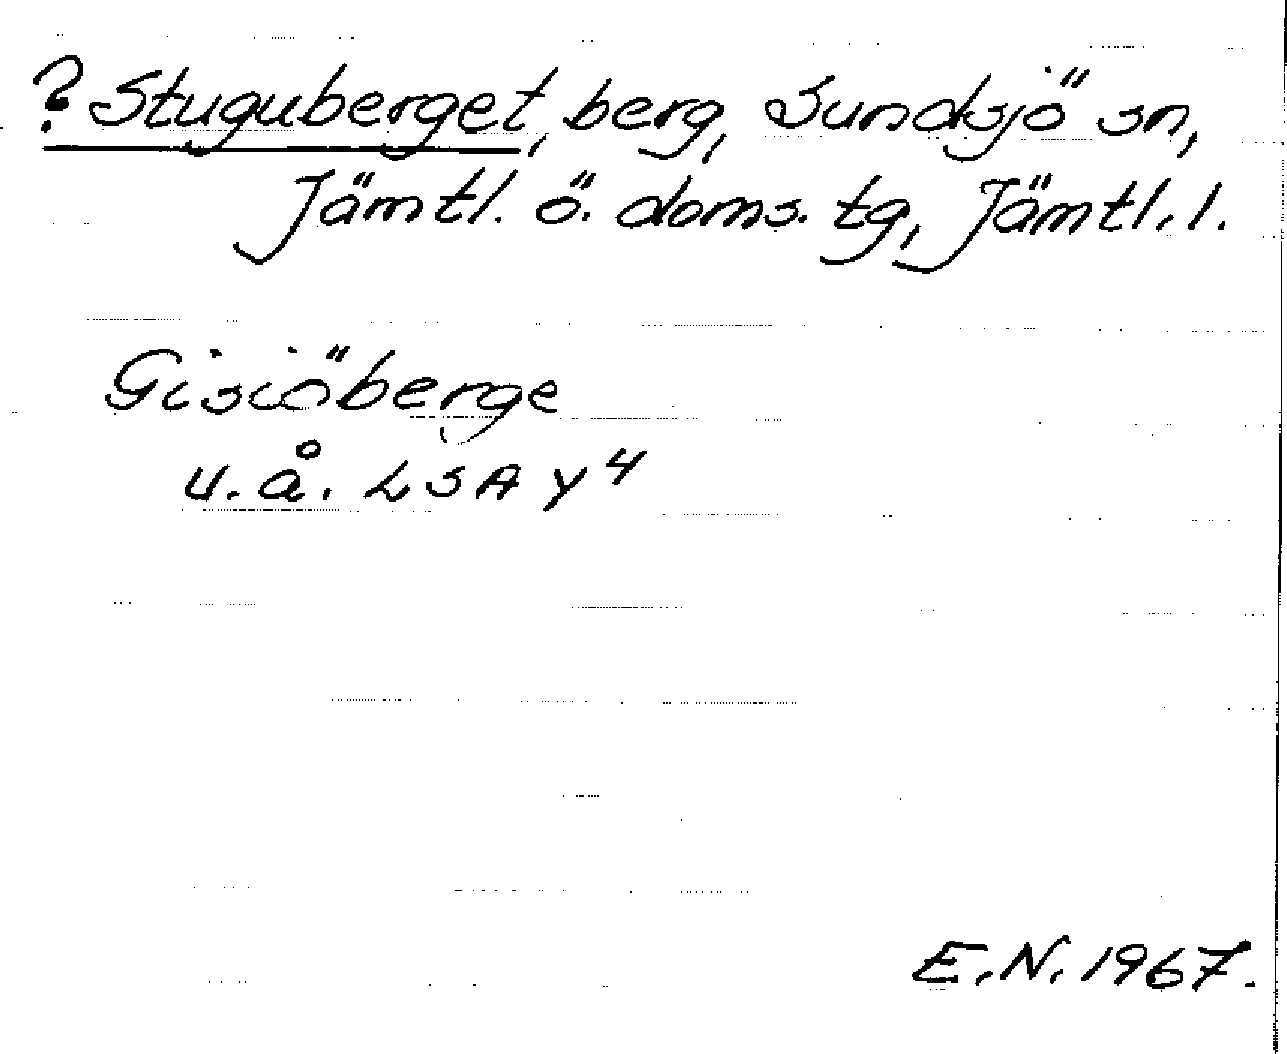 ? Stuguberget, berg, Sundsjö sn,
Jämtl. ö. doms. tg, Jämtl. l.
Gisiöberge
u. å. LSA Y 4
E. N. 1967.